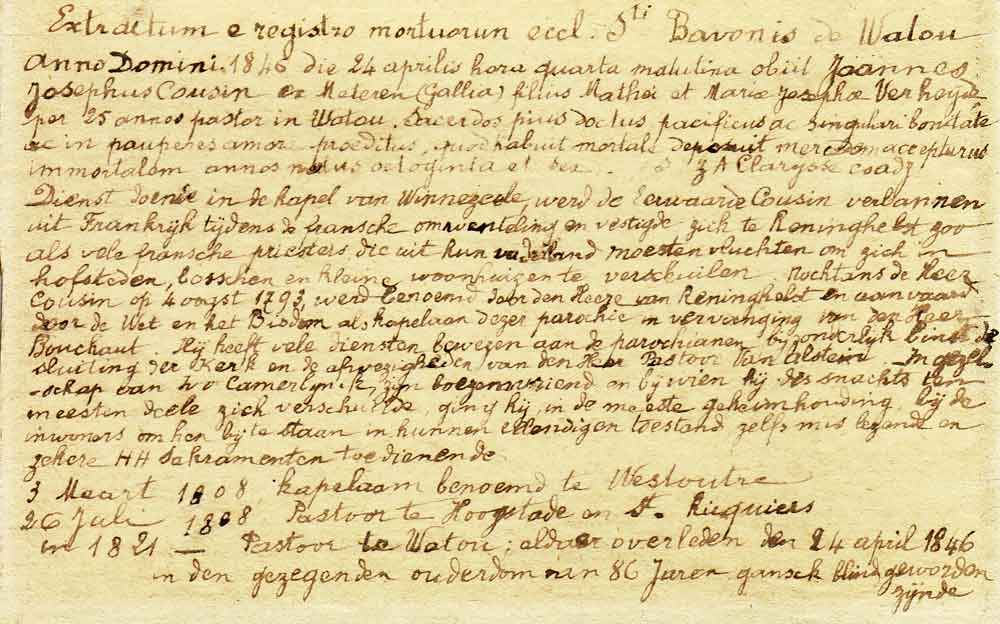 Extractum e registro mortuorum eccl. Sti Bavonis de Watou
Anno Domini 1846 die 24 aprilis hora quarta matutina obiit Joannes
Josephus Cousin ex Meteren (Gallia) filius Mathei et Mariæ Josephæ Verheyde
per 25 annos pastor in Watou. Sacerdos pius doctus pacificus ac singulari bonitate
ac in pauperes amore proeditus, quod habuit mortale deposuit mercedem accepturus
immortalem annos natus octoginta et sex .. J A Claryssе coadj
Dienst doende in de kapel van Winnezeele, werd de Eerwaarde Cousin verbannen
uit Frankrijk tijdens de fransche omwenteling en vestigde zich te Reninghelst zoo
als vele fransche priesters die uit hun vaderland moesten vluchten om zich in
hofsteden, bosschen en kleine woonhuizen te verschuilen. Nochtans de Heer
Cousin op 4 oogst 1793, werd benoemd door den Heere van Reninghelst en aanvaard
door de Wet en het Bisdom als kapelaan dezer parochie in vervanging van den Heer
Bouckaut. Hij heeft vele diensten bewezen aan de parochianen bijzonderlijk binst de
sluiting der Kerk en de afwezigheden van den Heer Pastoor Van Alstein. In gezel-
-schap van Camerlynck, zijn boezemvriend en bij wien hij des snachts ten
meesten deele zich verschuilde, ging hij, in de meeste geheimhouding, bij de
inwoners om hen bij te staan in hunnen ellendigen toestand zelfs mis lezende en
zekere HH Sakramenten toedienende.
3 Maart 1808, kapelaan benoemd te Westoutre
26 Juli 1808 Pastoor te Hoogstade en St. Ricquiers
in 1821 — Pastoor te Watou; aldaer overleden den 24 april 1846
in den gezegenden ouderdom van 86 Jaren gansch blind geworden
zijnde